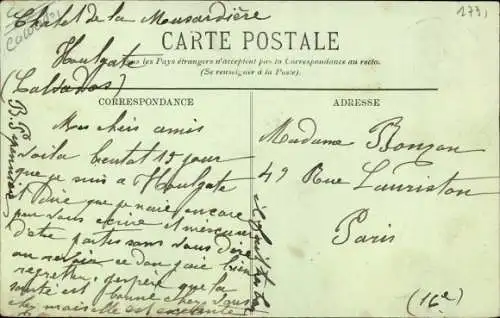 Chalet de la Mousardière
Houlgate
(Calvados)
Calvados
173,
CARTE POSTALE
Tous les Pays étrangers n'acceptent pas la Correspondance au recto.
(Se renseigner à la Poste).
CORRESPONDANCE
ADRESSE
Mes chers amis
Voila bientot 15 jour
que je suis a Houlgate
et dire que je n'aie encore
peu vous ecrire et m'excuser
d'etre parties sans vous dire
au revoir ce don j'aie bien
regretter, j'espère que la
santé est bonne chez vous
chez moi elle est excelente
Madame Bonzon
49 Rue Lauriston
Paris
(16e)